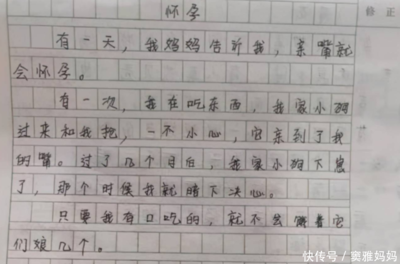 怀孕
修正
有一天，我妈妈告诉我，亲嘴就
会怀孕。
有一次，我在吃东西，我家小狗
过来和我抢，一不小心，它亲到了我
的嘴。过了几个月后，我家小狗下崽
了，那个时侯我就暗下决心。
只要我有口吃的，就不会饿着它
们娘几个。
快传号／窦雅妈妈